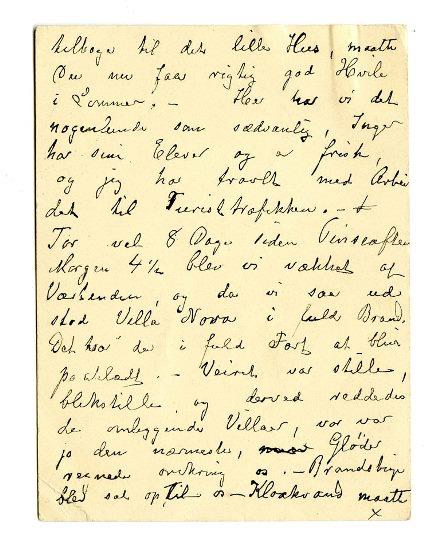 tilbage til det lille Hus, maatte
Du nu faa rigtig god Hvile
i Sommer. – Her har vi det
nogenlunde som sædvanlig, Inger
har sine Elever og er frisk,
og jeg har travlt med Arbei
det til Turisttrafikken. –
For vel 8 Dage siden Pinseaften
Morgen 4½ blev vi vækket af
Værtinden, og da vi saa ud
stod Villa Nova i fuld Brand.
Det var der i fuld Fart at blive
paaklædt. – Veiret var stille,
blikstille og derved reddedes
de omliggende Villaer, vor var
jo den nærmeste, Gløder
regnede omkring os. – Brandslange
blev sat op til os – Kloakvand maatte
x